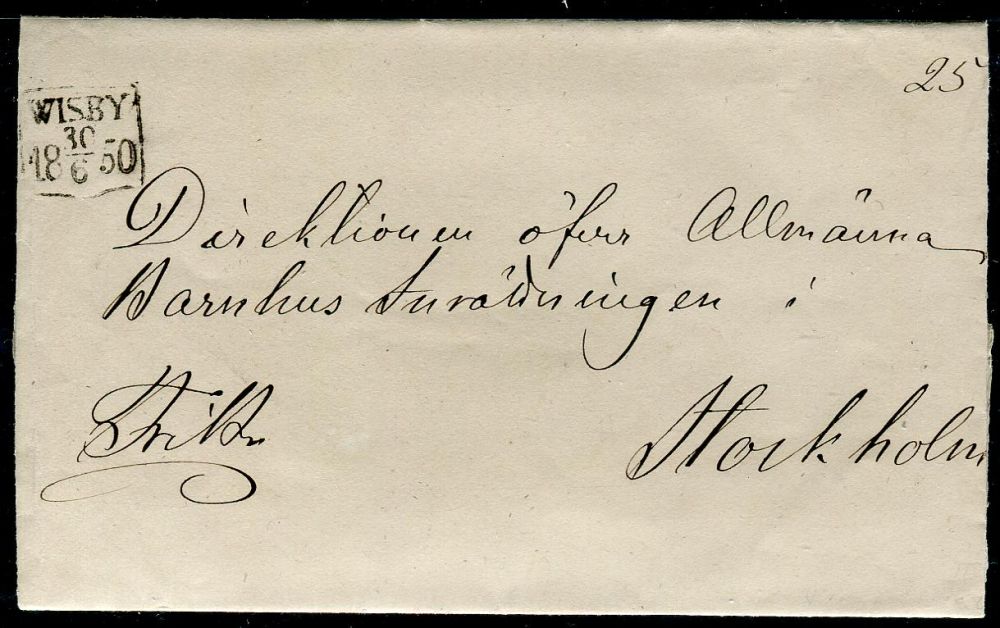 25
WISBY
18 30/6 50
Direktionen öfver Allmänna
Barnhus Inrättningen i
Stockholm